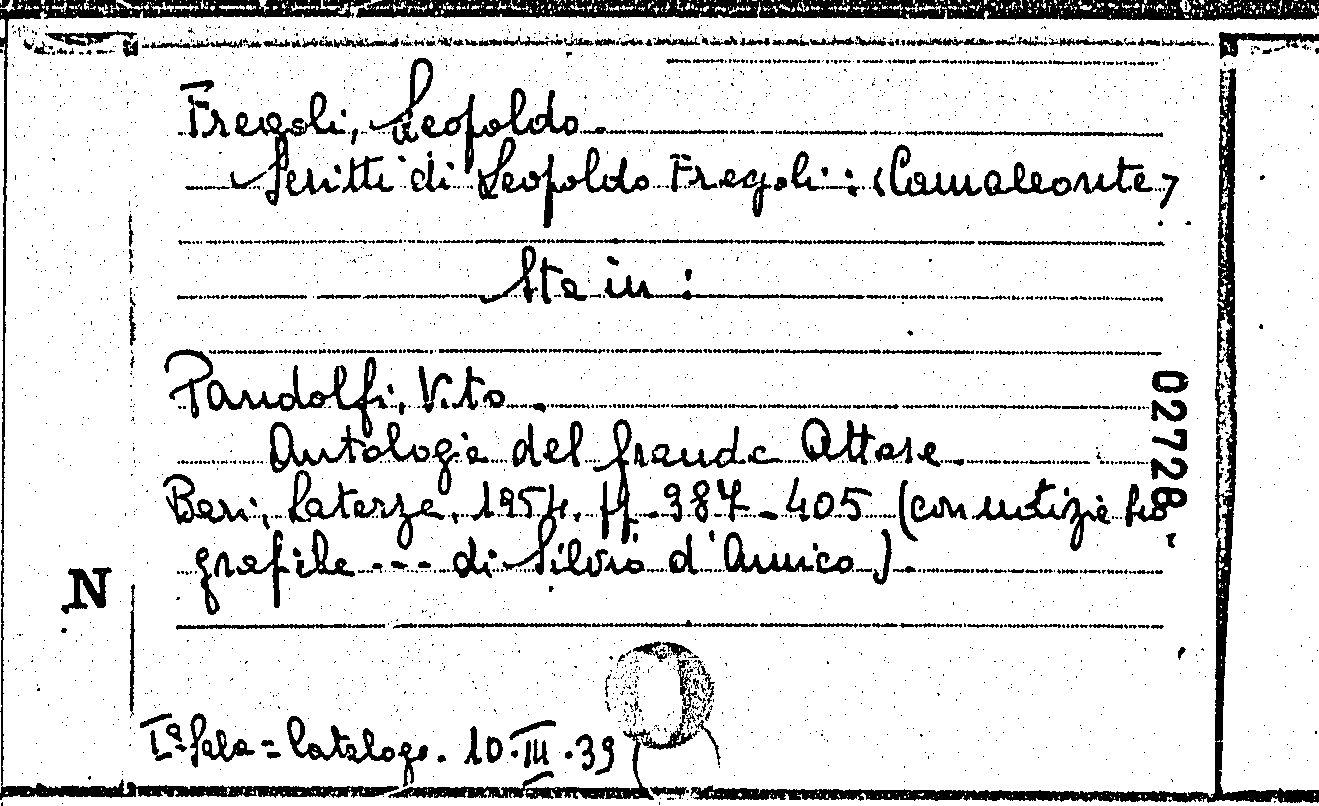 Fregoli, Leopoldo.
Scritti di Leopoldo Fregoli: <Camaleonte>
Sta in:
Pandolfi, Vito.
Antologia del grande Attore.
Bari, Laterza, 1954. pp. 387-405 (con notizie bio
grafiche --- di Silvio d'Amico).
02728
N
Iª Sala = Catalogo. 10.III.39